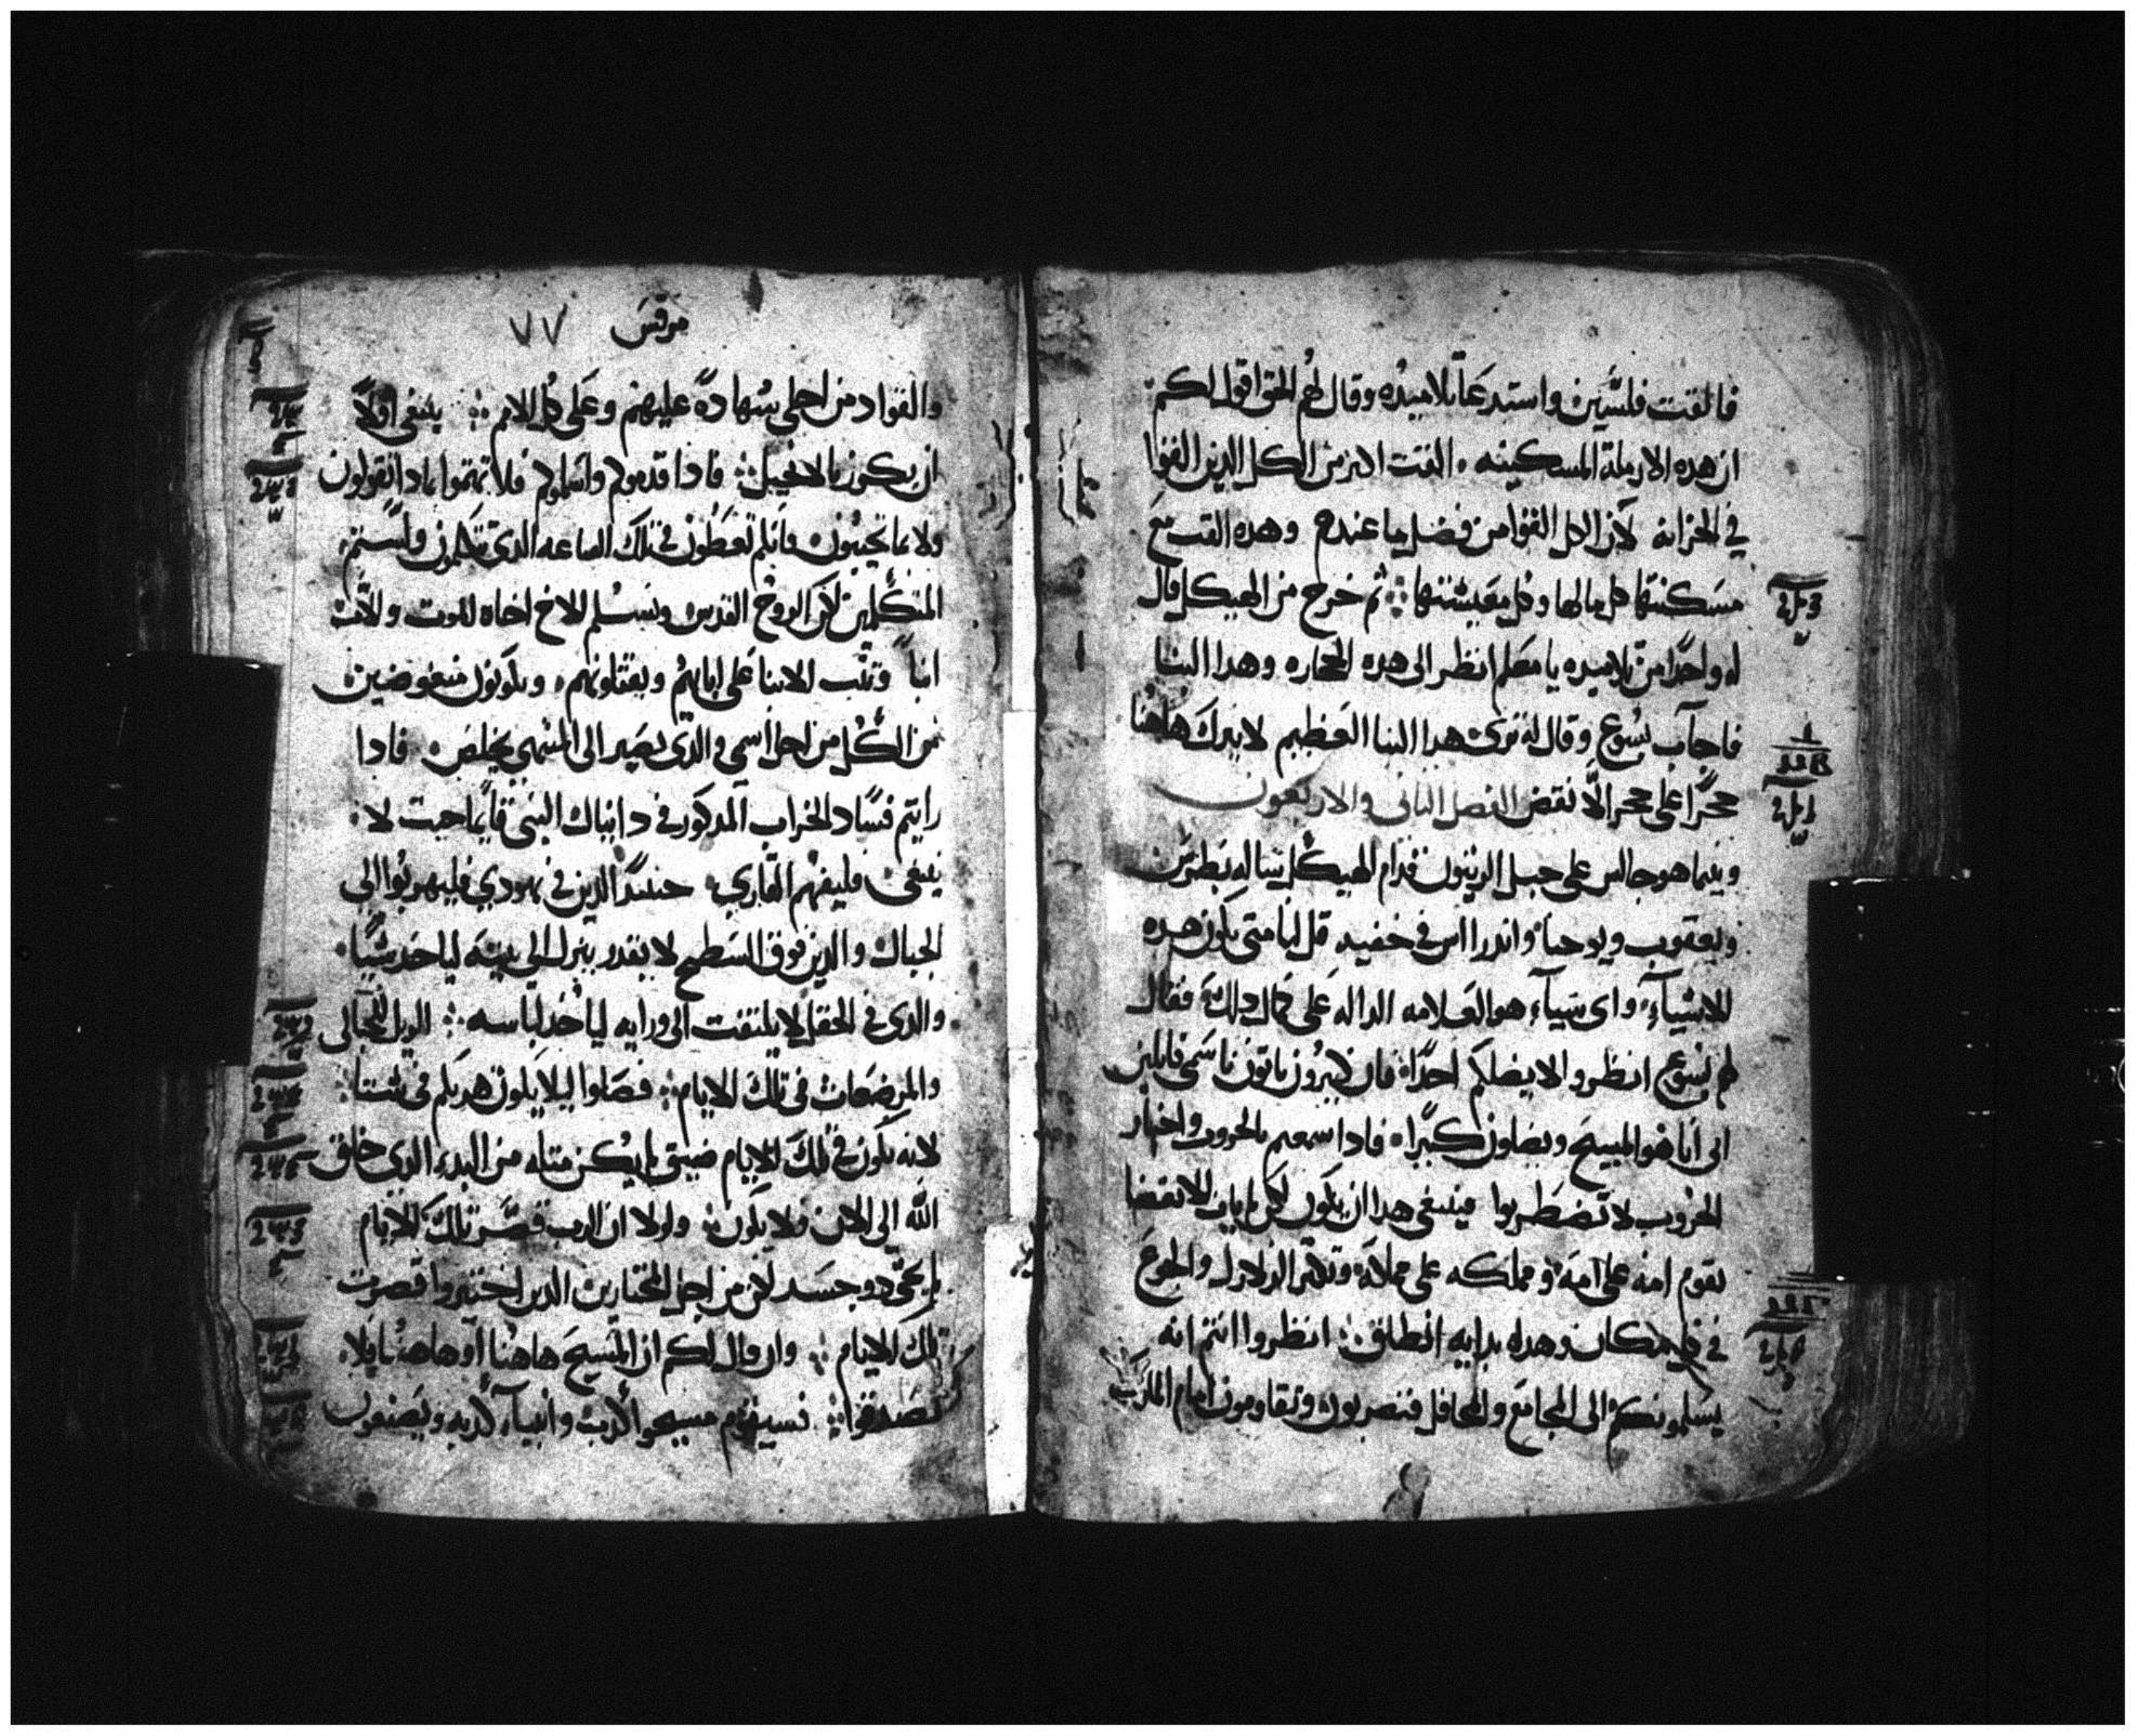 فالقت فلسين واستدعا تلاميده وقال لهم الحق اقول لكم
ان هده الارملة المسكينه القت اكثر من الكل الدين القوا
في الخزانه لان الكل القوا من فضل ما عندهم وهده القت مع
مسكنتها كل مالها وكل معيشتها ثم خرج من الهيكل قال
له واحدا من تلاميده يا معلم انظر الى هده الحجاره وهدا البنا
فاجاب يسوع وقال له ترى هدا البنا العظيم لا يترك هاهنا
حجرا على حجر الا نقض الفصل الثاني والاربعون
وبينما هو جالس على جبل الزيتون قدام الهيكل ساله بطرس
ويعقوب ويوحنا واندراس في خفيه قل لنا متى تكون هده
الاشياء واى شياء هو العلامه الداله على كمال دلك فقال
لهم يسوع انظروا لا يضلكم احدا فان كثيرون ياتون باسمي قايلين
اني انا هو المسيح ويضلون كثيرا فادا سمعتم بالحروب واخبار
الحروب لا تضطربوا فينبغي هدا ان يكون لكن لم يات الانقضا
تقوم امه على امه ومملكه على مملكه وتكثر الزلازل والجوع
في كل مكان وهده بدايه انطلاق انظروا انتم انه
يسلمونكم الى المجامع والمحافل فتضربون وتقاومون امام الملوك
مرقس ٧٧
والقواد من اجلي شهادة عليهم وعلى كل الامم ينبغي اولا
ان يكرز بالانجيل فادا قدموكم واسلموكم فلا تهتموا بمادا تقولون
ولا بما تجيبون فانكم تعطون في تلك الساعه الدي تتكلمون ولستم
المتكلمين لكن الروح القدس ويسلم الاخ اخاه للموت والاب
ابنا وتثب الابنا على ابايهم ويقتلونهم وتكونون مبغوضين
من الكل من اجل اسمي والدي يصبر الى المنتهى يخلص فادا
رايتم فساد الخراب المدكور في دانيال النبي قايما حيت لا
ينبغي فليفهم القاري حينيد الدين في يهودي فليهربوا الى
الجبال والدين فوق السطح لا يقدر ينزل الى بيته لياخد شيا
والدى في الحقل لا يلتفت الى ورايه لياخد لباسه الويل للحبالى
والمرضعات في تلك الايام فصلوا ليلا يكون هربكم في شتا
لانه تكون في تلك الايام ضيق لم يكن مثله من البدء الدي خلق
الله الى الان ولا يكون ولولا ان الرب قصر تلك الايام
لم يحى دو جسد لكن من اجل المختارين الدين اختيروا قصرت
تلك الايام وان قال لكم ان المسيح هاهنا او هاهنا فلا
تصدقوا فسيقوم مسيحوا كدب وانبياء كدبه ويصنعون